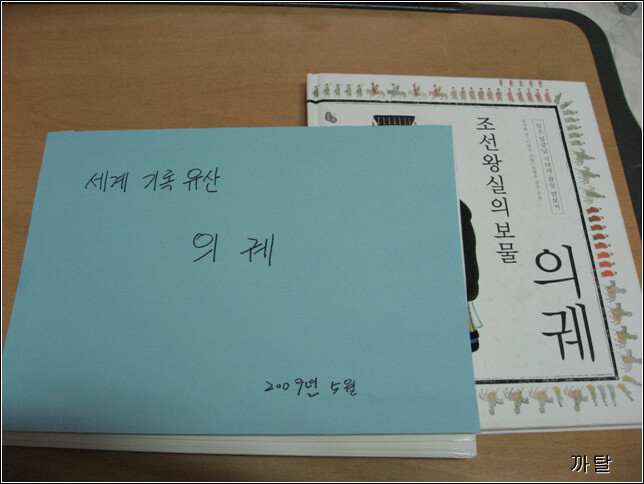 세계 기록 유산
의 궤
2009년 5월
조선왕실의 보물
의궤
까탈